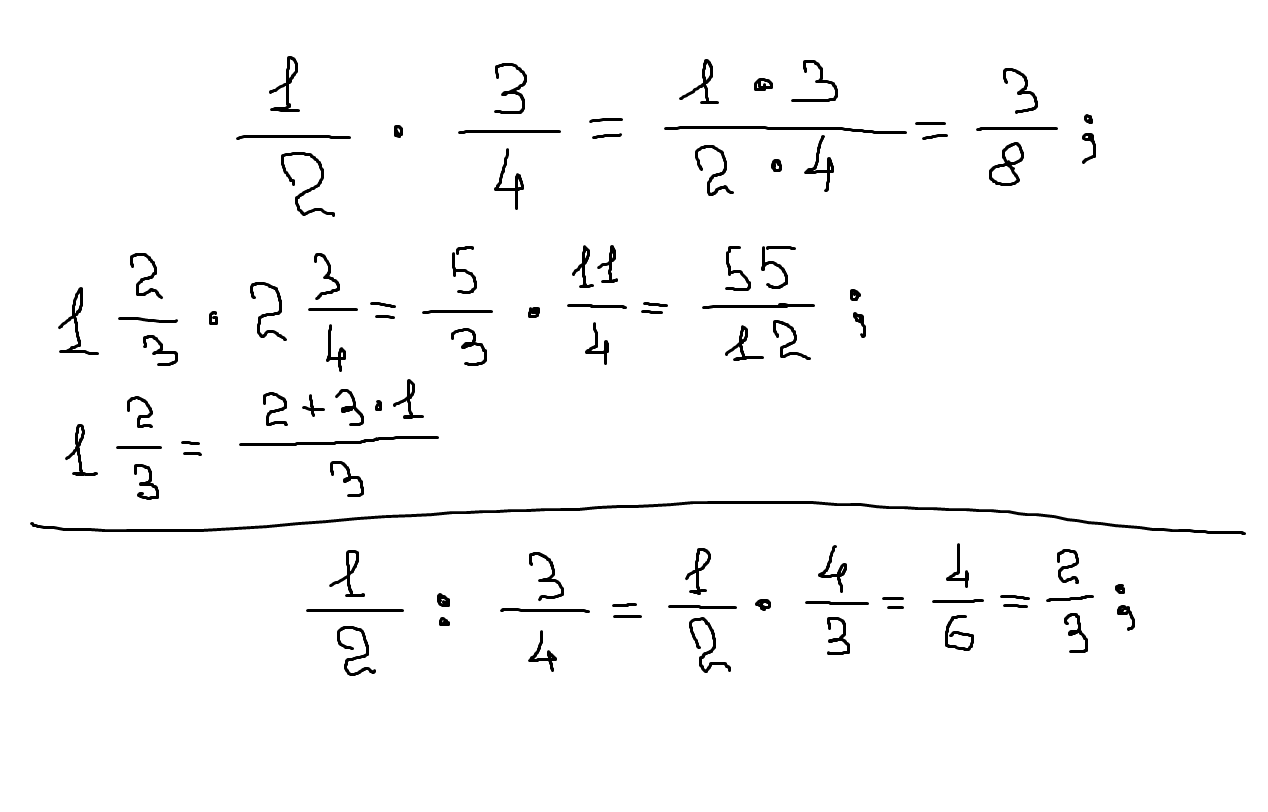 1/2 · 3/4 = 1·3/2·4 = 3/8 ;
1 2/3 · 2 3/4 = 5/3 · 11/4 = 55/12 ;
1 2/3 = 2+3·1/3
1/2 : 3/4 = 1/2 · 4/3 = 4/6 = 2/3 ;